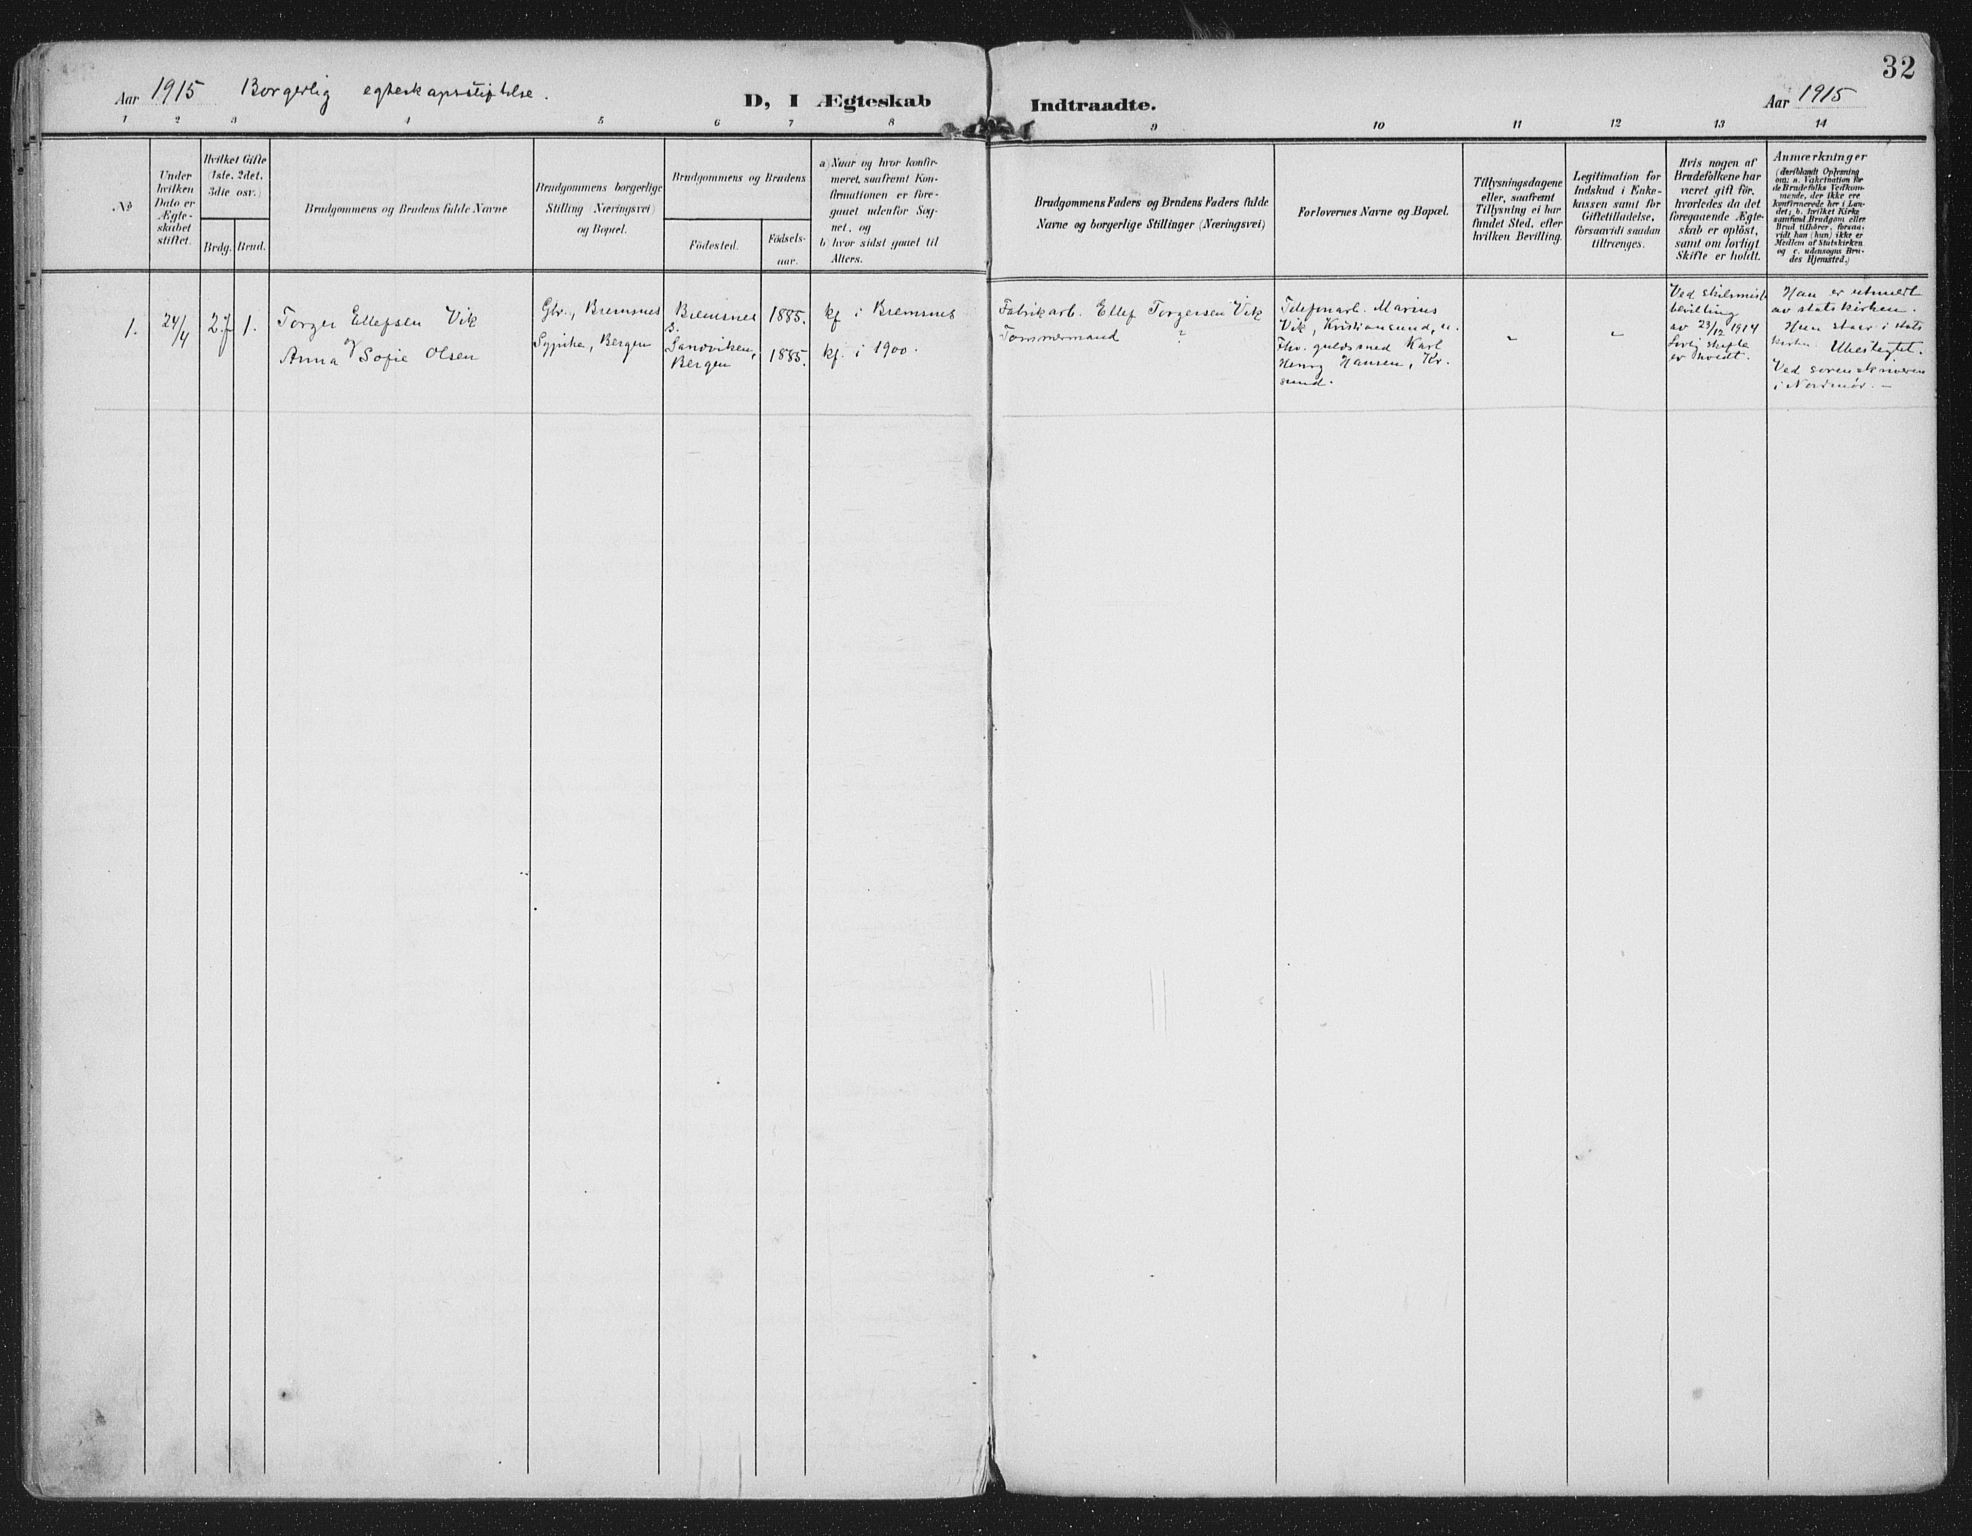 Aar 1915 Borgerlig egteskapsstiftelse.
D, I Ægteskab Indtraadte.
Aar 1915
32
1 2 3 4 5 6 7 8 9 10 11 12 13 14
No
Under
hvilken
Dato er
Ægte-
skabet
stiftet.
Hvilket Gifte
(1ste, 2det,
3die osv.)
Brdg. Brud.
Brudgommens og Brudens fulde Navne
Brudgommens borgerlige
Stilling (Næringsvei)
og Bopæl.
Brudgommens og Brudens
Födested.
Födsels-
aar.
a) Naar og hvor konfir-
meret, saafremt Kon-
firmationen er fore-
gaaet udenfor Sog-
net, og
b) hvor sidst gaaet til
Alters.
Brudgommens Faders og Brudens Faders fulde
Navne og borgerlige Stillinger (Næringsvei)
Forlovernes Navne og Bopæl.
Tillysningsdagene
eller, saafremt
Tillysning ei har
fundet Sted, efter
hvilken Bevilling.
Legitimation for
Indskud i Enke-
kassen samt for
Giftetilladelse,
forsaavidt saadan
tiltrænges.
Hvis nogen af
Brudefolkene har
været gift för,
hvorledes da det
foregaaende Ægte-
skab er oplöst,
samt om lovligt
Skifte er holdt.
Anmærkninger
(deriblandt Oplysning
om: a. Vakcination for
de Brudefolks Vedkom-
mende, der ikke ere
konfirmerede her i Lan-
det; b. hvilket Kirke
samfund Brudgom eller
Brud tilhörer, forsaa-
vidt han (hun) ikke er
Medlem af Statskirken
og c. udensogns Bru-
des Hjemsted.)
1.
24/4
2.
1.
Torger Ellefsen Vik
og
Anna Sofie Olsen
Gbr., Bremsnes
Sypike, Bergen
Bremsnes
Sandviken,
Bergen
1885.
1885.
kf. i Bremsnes
kf. i 1900.
Fabrikarb. Ellef Torgersen Vik
Tømmermand ?
Telefonarb. Marius
Vik, Kristiansund, o.
Fhv. guldsmed Karl
Henry Hansen, Kr.
sund.
"
"
Ved skilsmisse
bevilling
av 29/12 1914
Lovlig skifte
er holdt.
Han er utmeldt
av statskirken.
Hun staar i stats
kirken. Ubeslegtet.
Ved sorenskriveren
i Nordmør. -